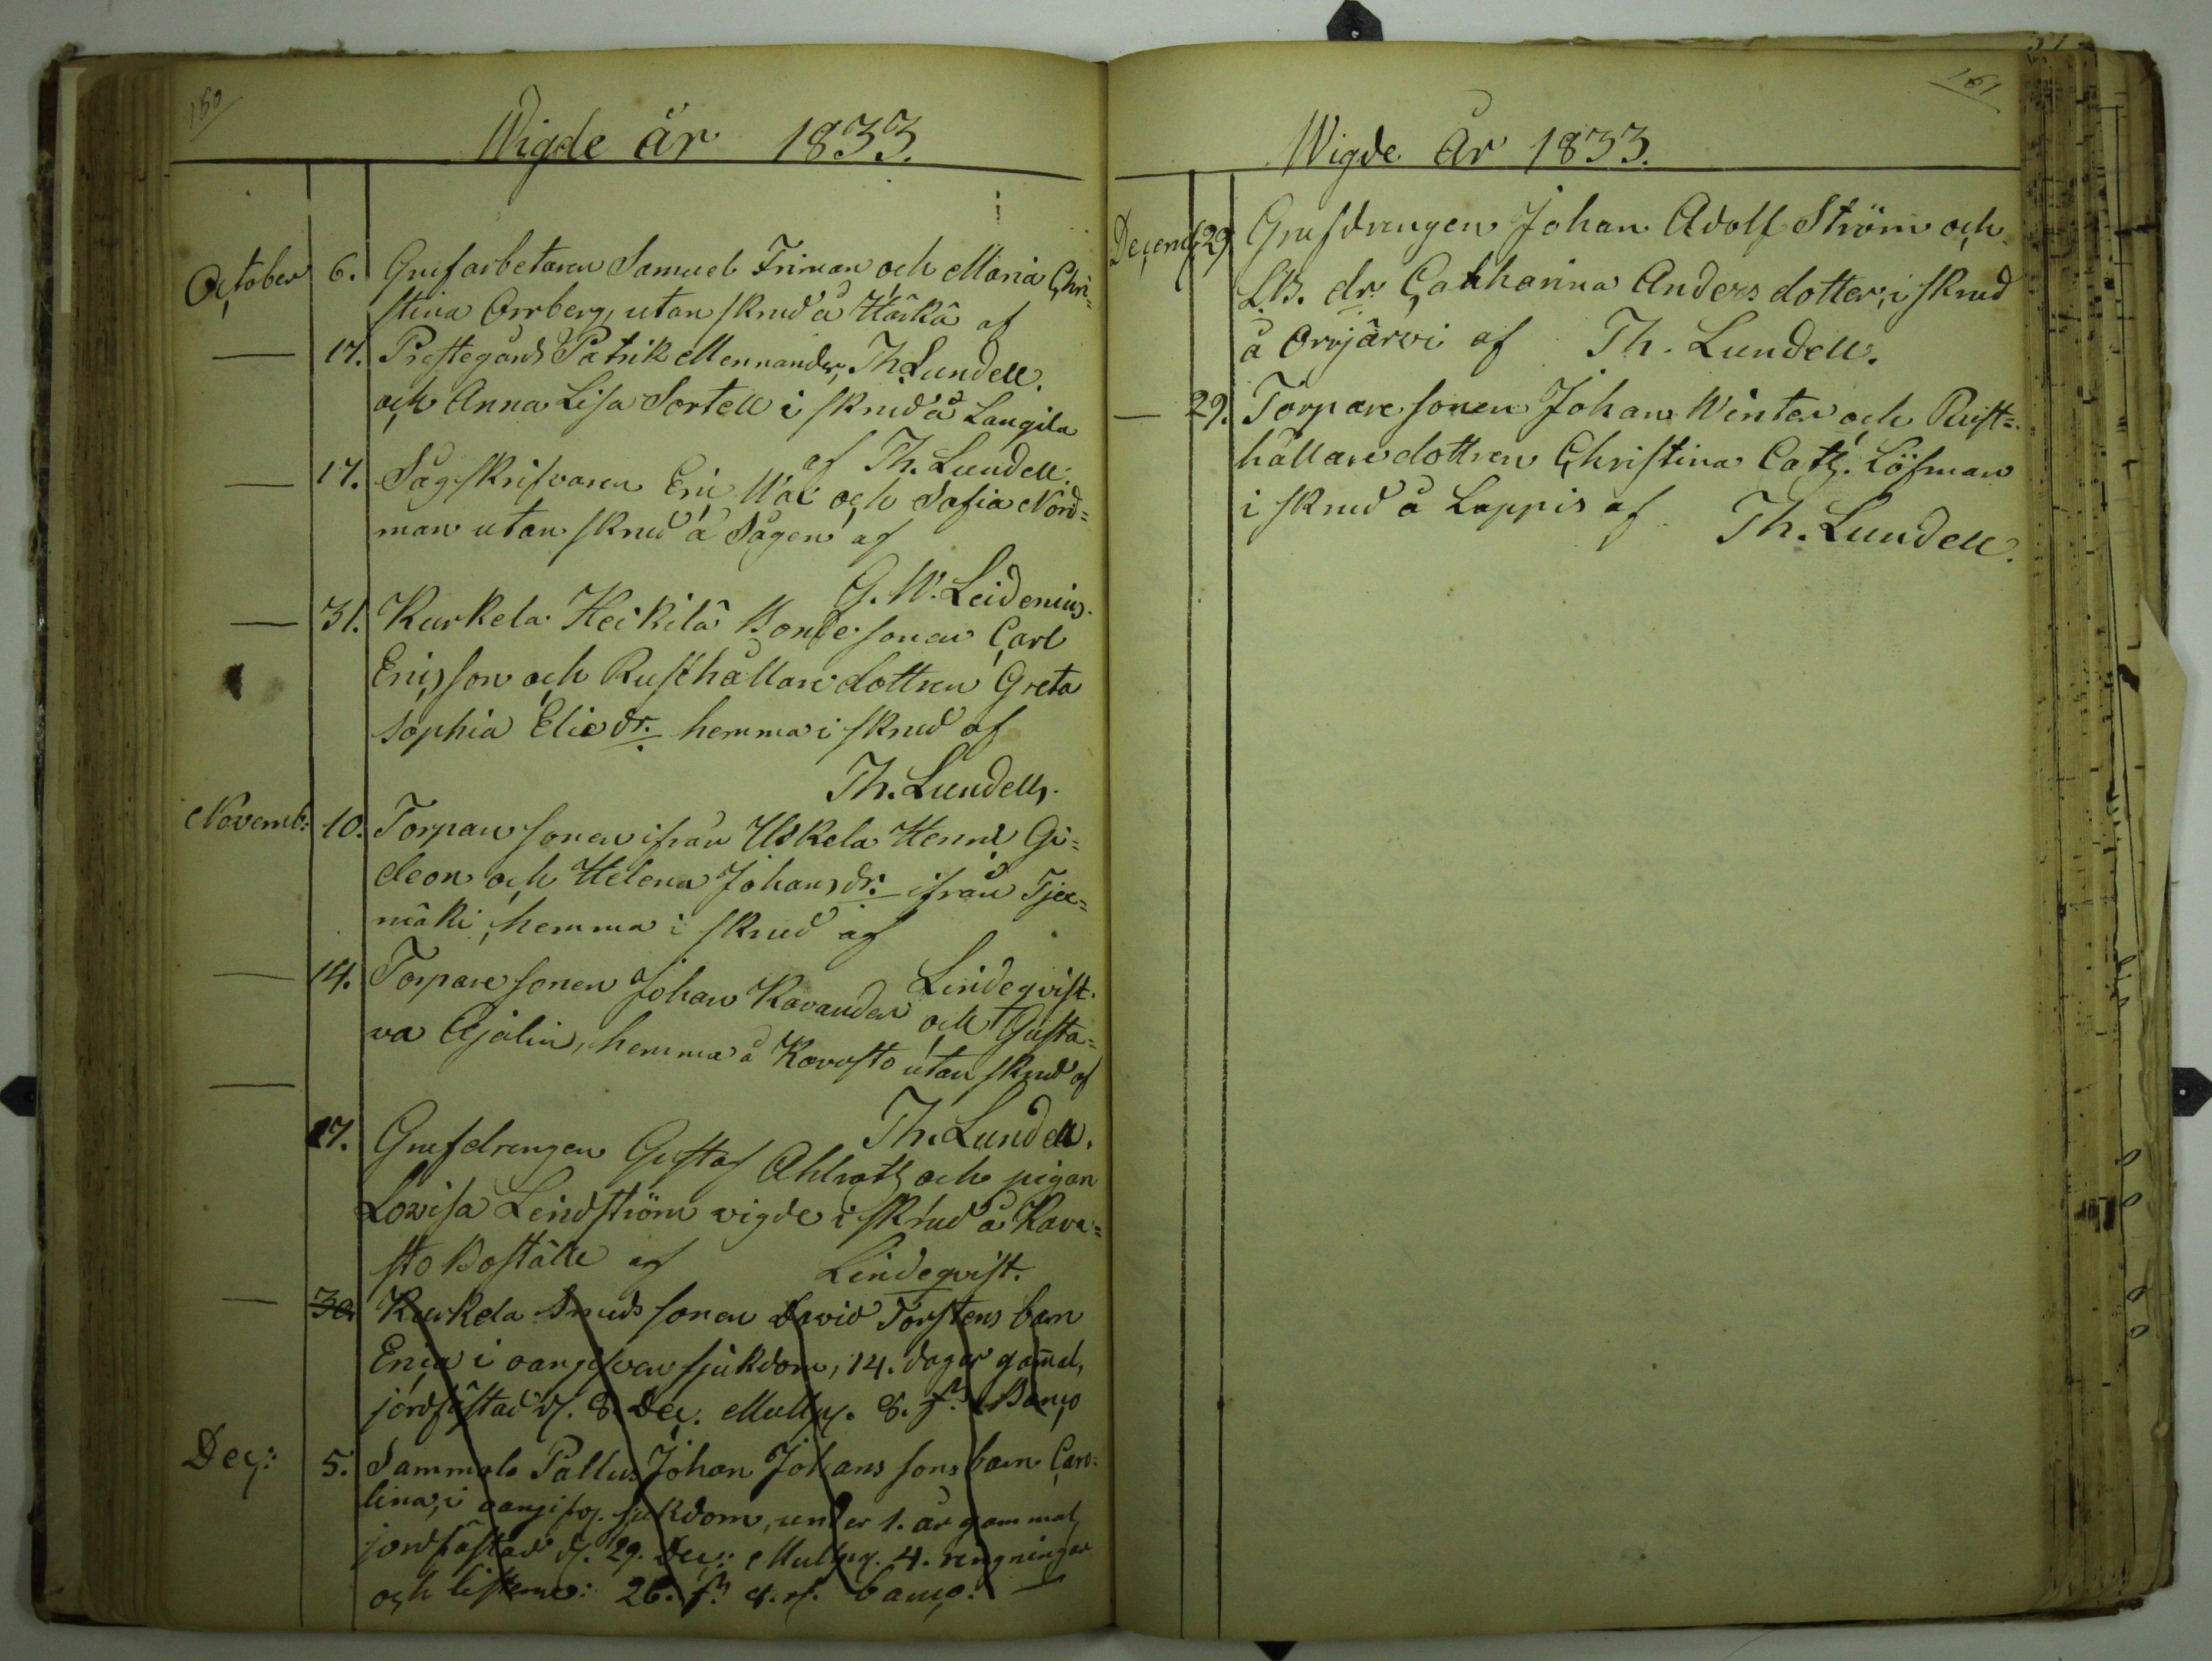 160
Wigde år 1833.
October 6. Grufarbetaren Samuel Friman och Maria Chri=
stina Orrberg, utan skrud å Härkä af
Th. Lundell.
— 17. Prestegårds Patrik Mennander,
och Anna Lisa Sortell i skrud å Laugila
af Th. Lundell.
— 17. Sågskrifvaren Eric Wax och Sofia Nord=
man utan skrud å Sågen af
G. W. Leidenius.
— 31. Kurkela Heikilä Bonde sonen Carl
Ericsson och Rusthållare dottren Greta
Sophia Eliedr. hemma i skrud af
Th. Lundell.
Novemb: 10. Torpare sonen ifrån Uskela Henric Gi=
deon och Helena Johansdr. ifrån Tjer=
mäki, hemma i skrud af
Lindeqvist.
— 14. Torpare sonen Johan Kavander och Gusta=
va Ajalin, hemma å Kavasto utan skrud af
Th. Lundell.
— 17. Grufdrengen Gustaf Ahlroth och pigan
Lovisa Lindström vigde i skrud å Kava=
sto Boställe af Lindeqvist.
— 30 Kurkela Smeds sonen David Torstens barn
Erica i oangifven sjukdom, 14. dagar gamal,
jordfästad d. 8. Dec. Mullp. 8. Banco
Dec: 5. Sammalo Pallus Johan Johans sons barn Caro=
lina, i oangifv. sjukdom, under 1. år gammal
jordfästad d. 29. Dec: Mullp. 4. ringningar
och 26. banco. —
161
Wigde År 1833.
Decemb. 29 Grufdrengen Johan Adolf Ström och
LB. dr. Catharina Anders dotter, i skrud
å Orrjärvi af Th. Lundell.
— 29. Torpare sonen Johan Winter och Rust=
hållare dottren Christina Cath. Löfman
i skrud å Lappis af Th. Lundell.